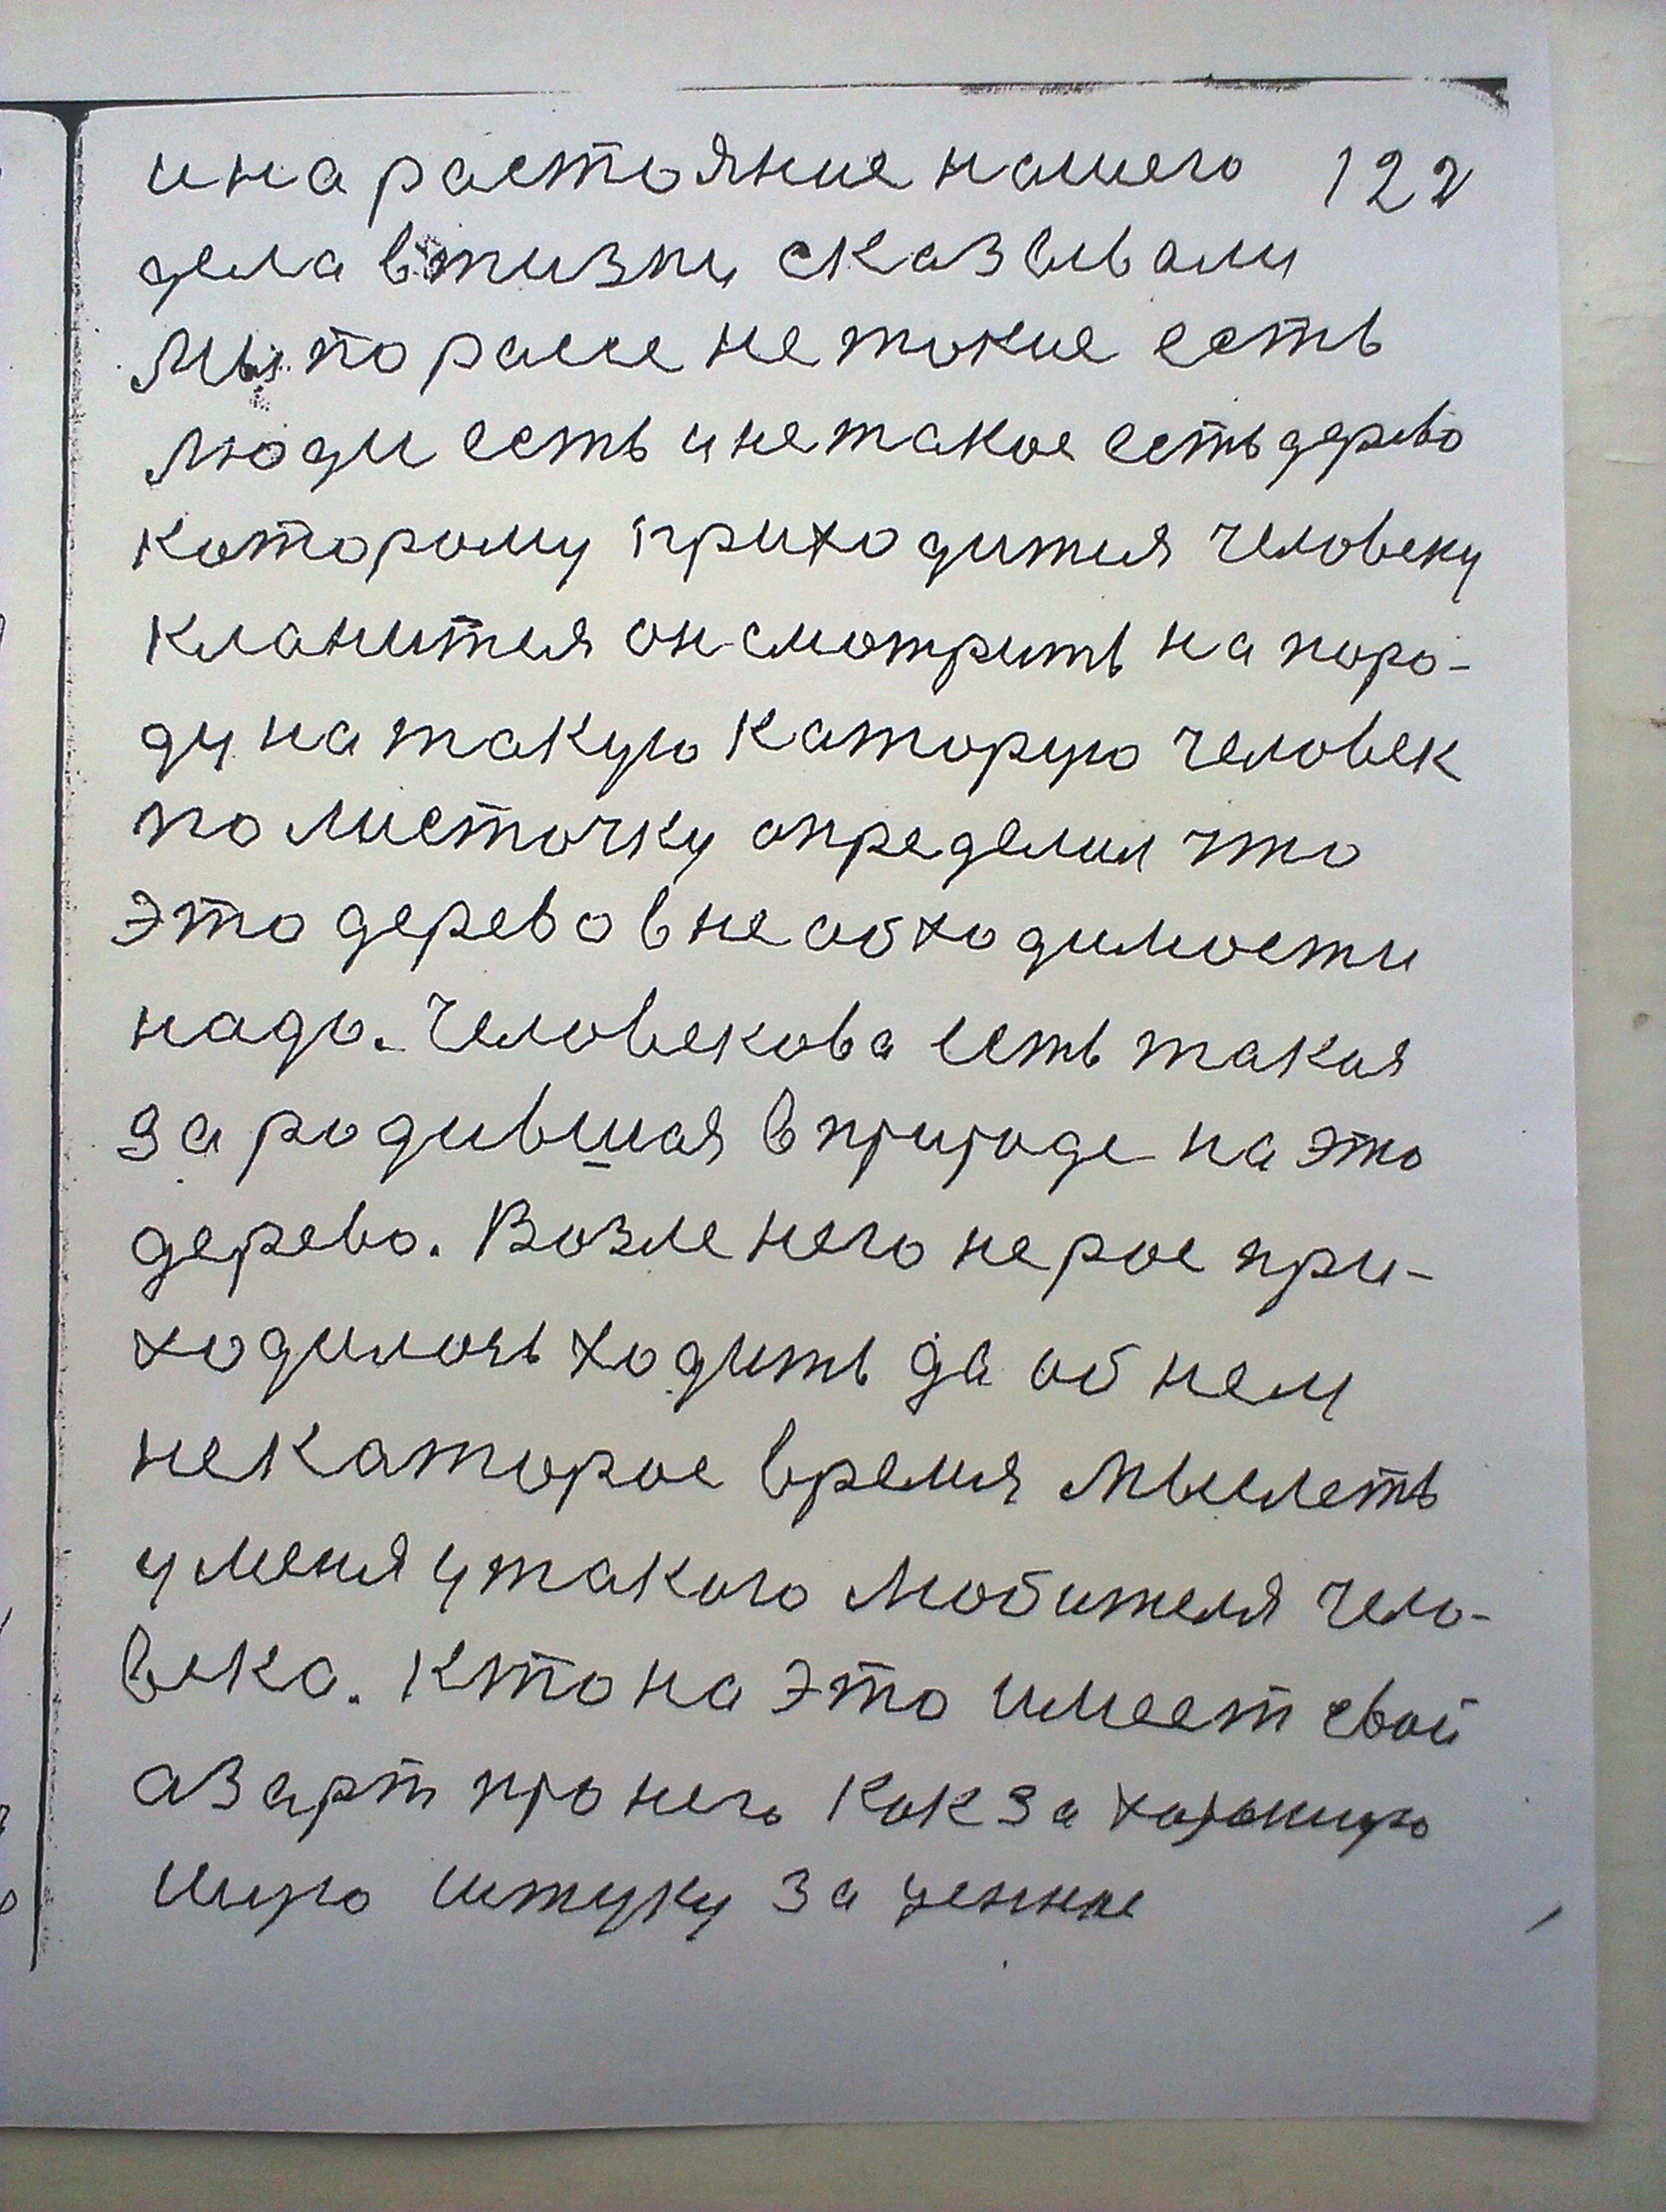 и на растояние нашего 122
дела в жизни сказывали
Мы по расее не токие есть
люди есть и не такое есть дерево
которому приходится человеку
кланится он смотрить на поро-
ду на такую каторую человек
по листочку определил что
это дерево в не обходимости
надо. Человекова есть такая
зародившая в природе на это
дерево. Возле него не рое при-
ходилось ходить да об нем
некаторое время мыслеть
у меня у такого любителя чело-
века. Кто на это имеет свой
азарт про него как за хорошую
штуку за ценные